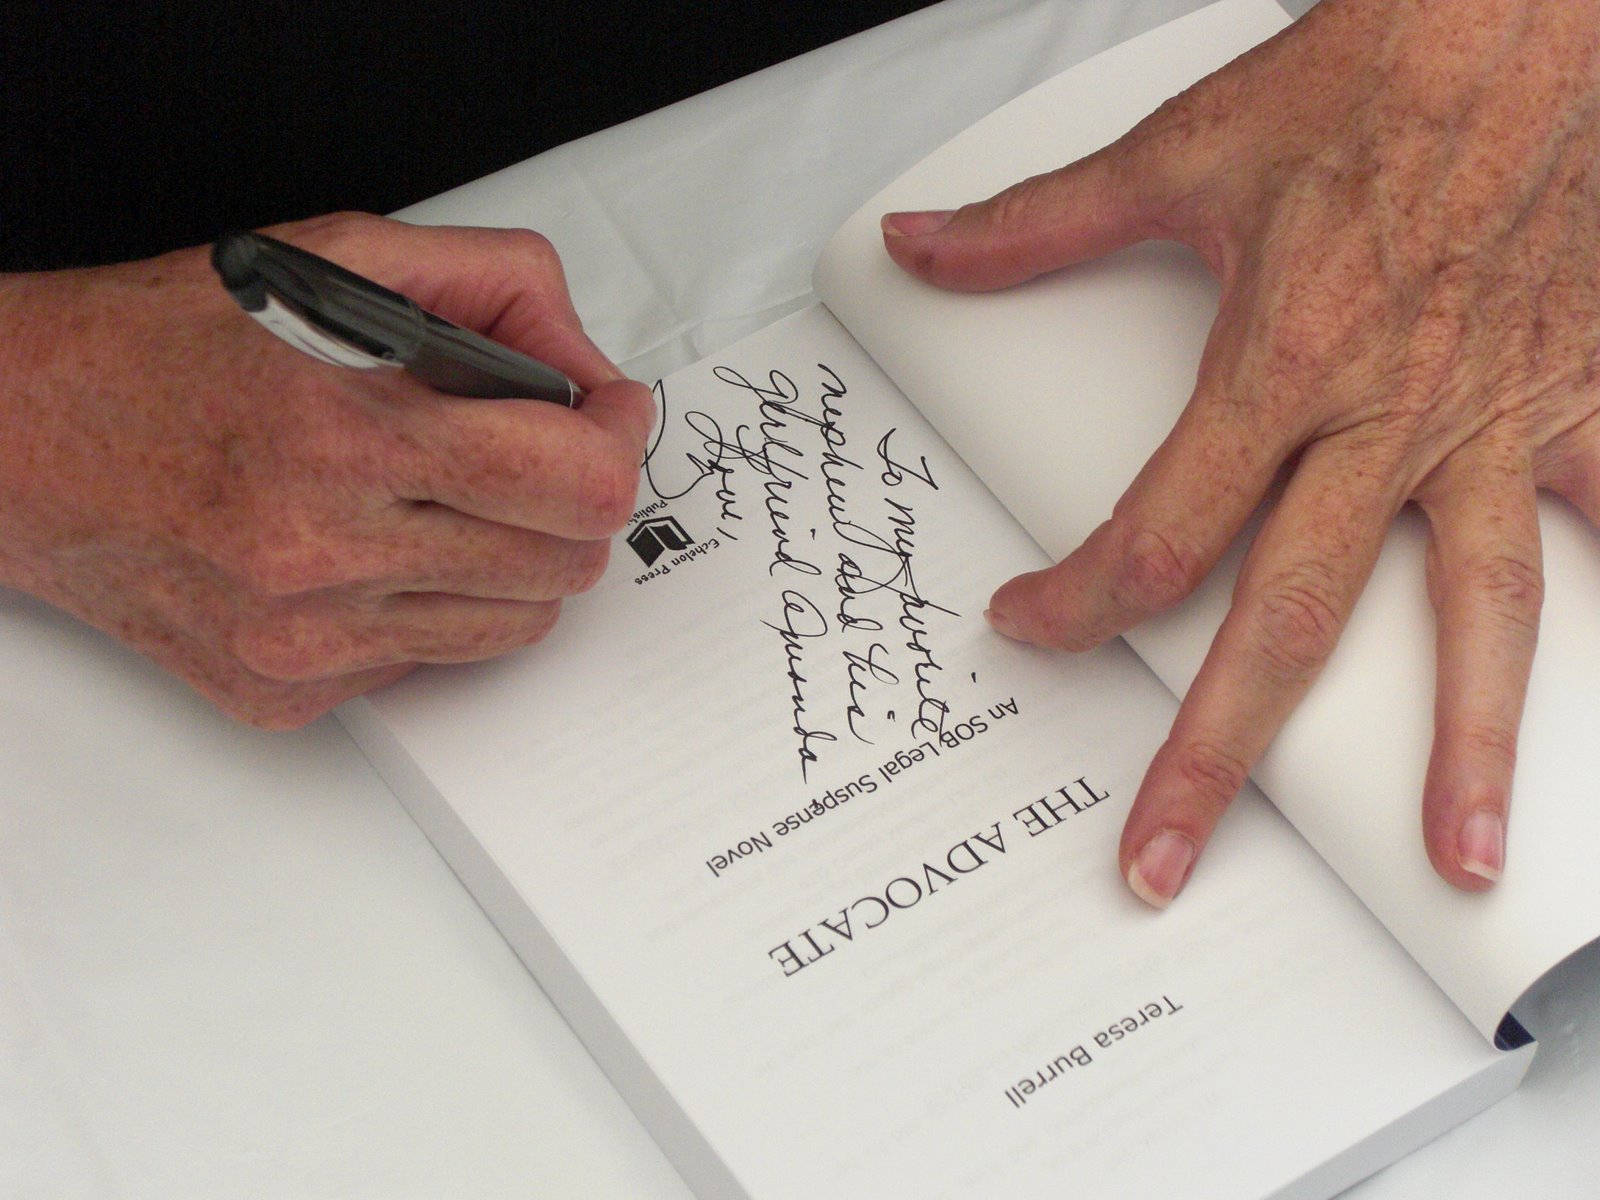 Teresa Burrell
THE ADVOCATE
An SOB Legal Suspense Novel
To my favorite
nephew and his
girlfriend Amanda
Love,
Echelon Press
Publishi